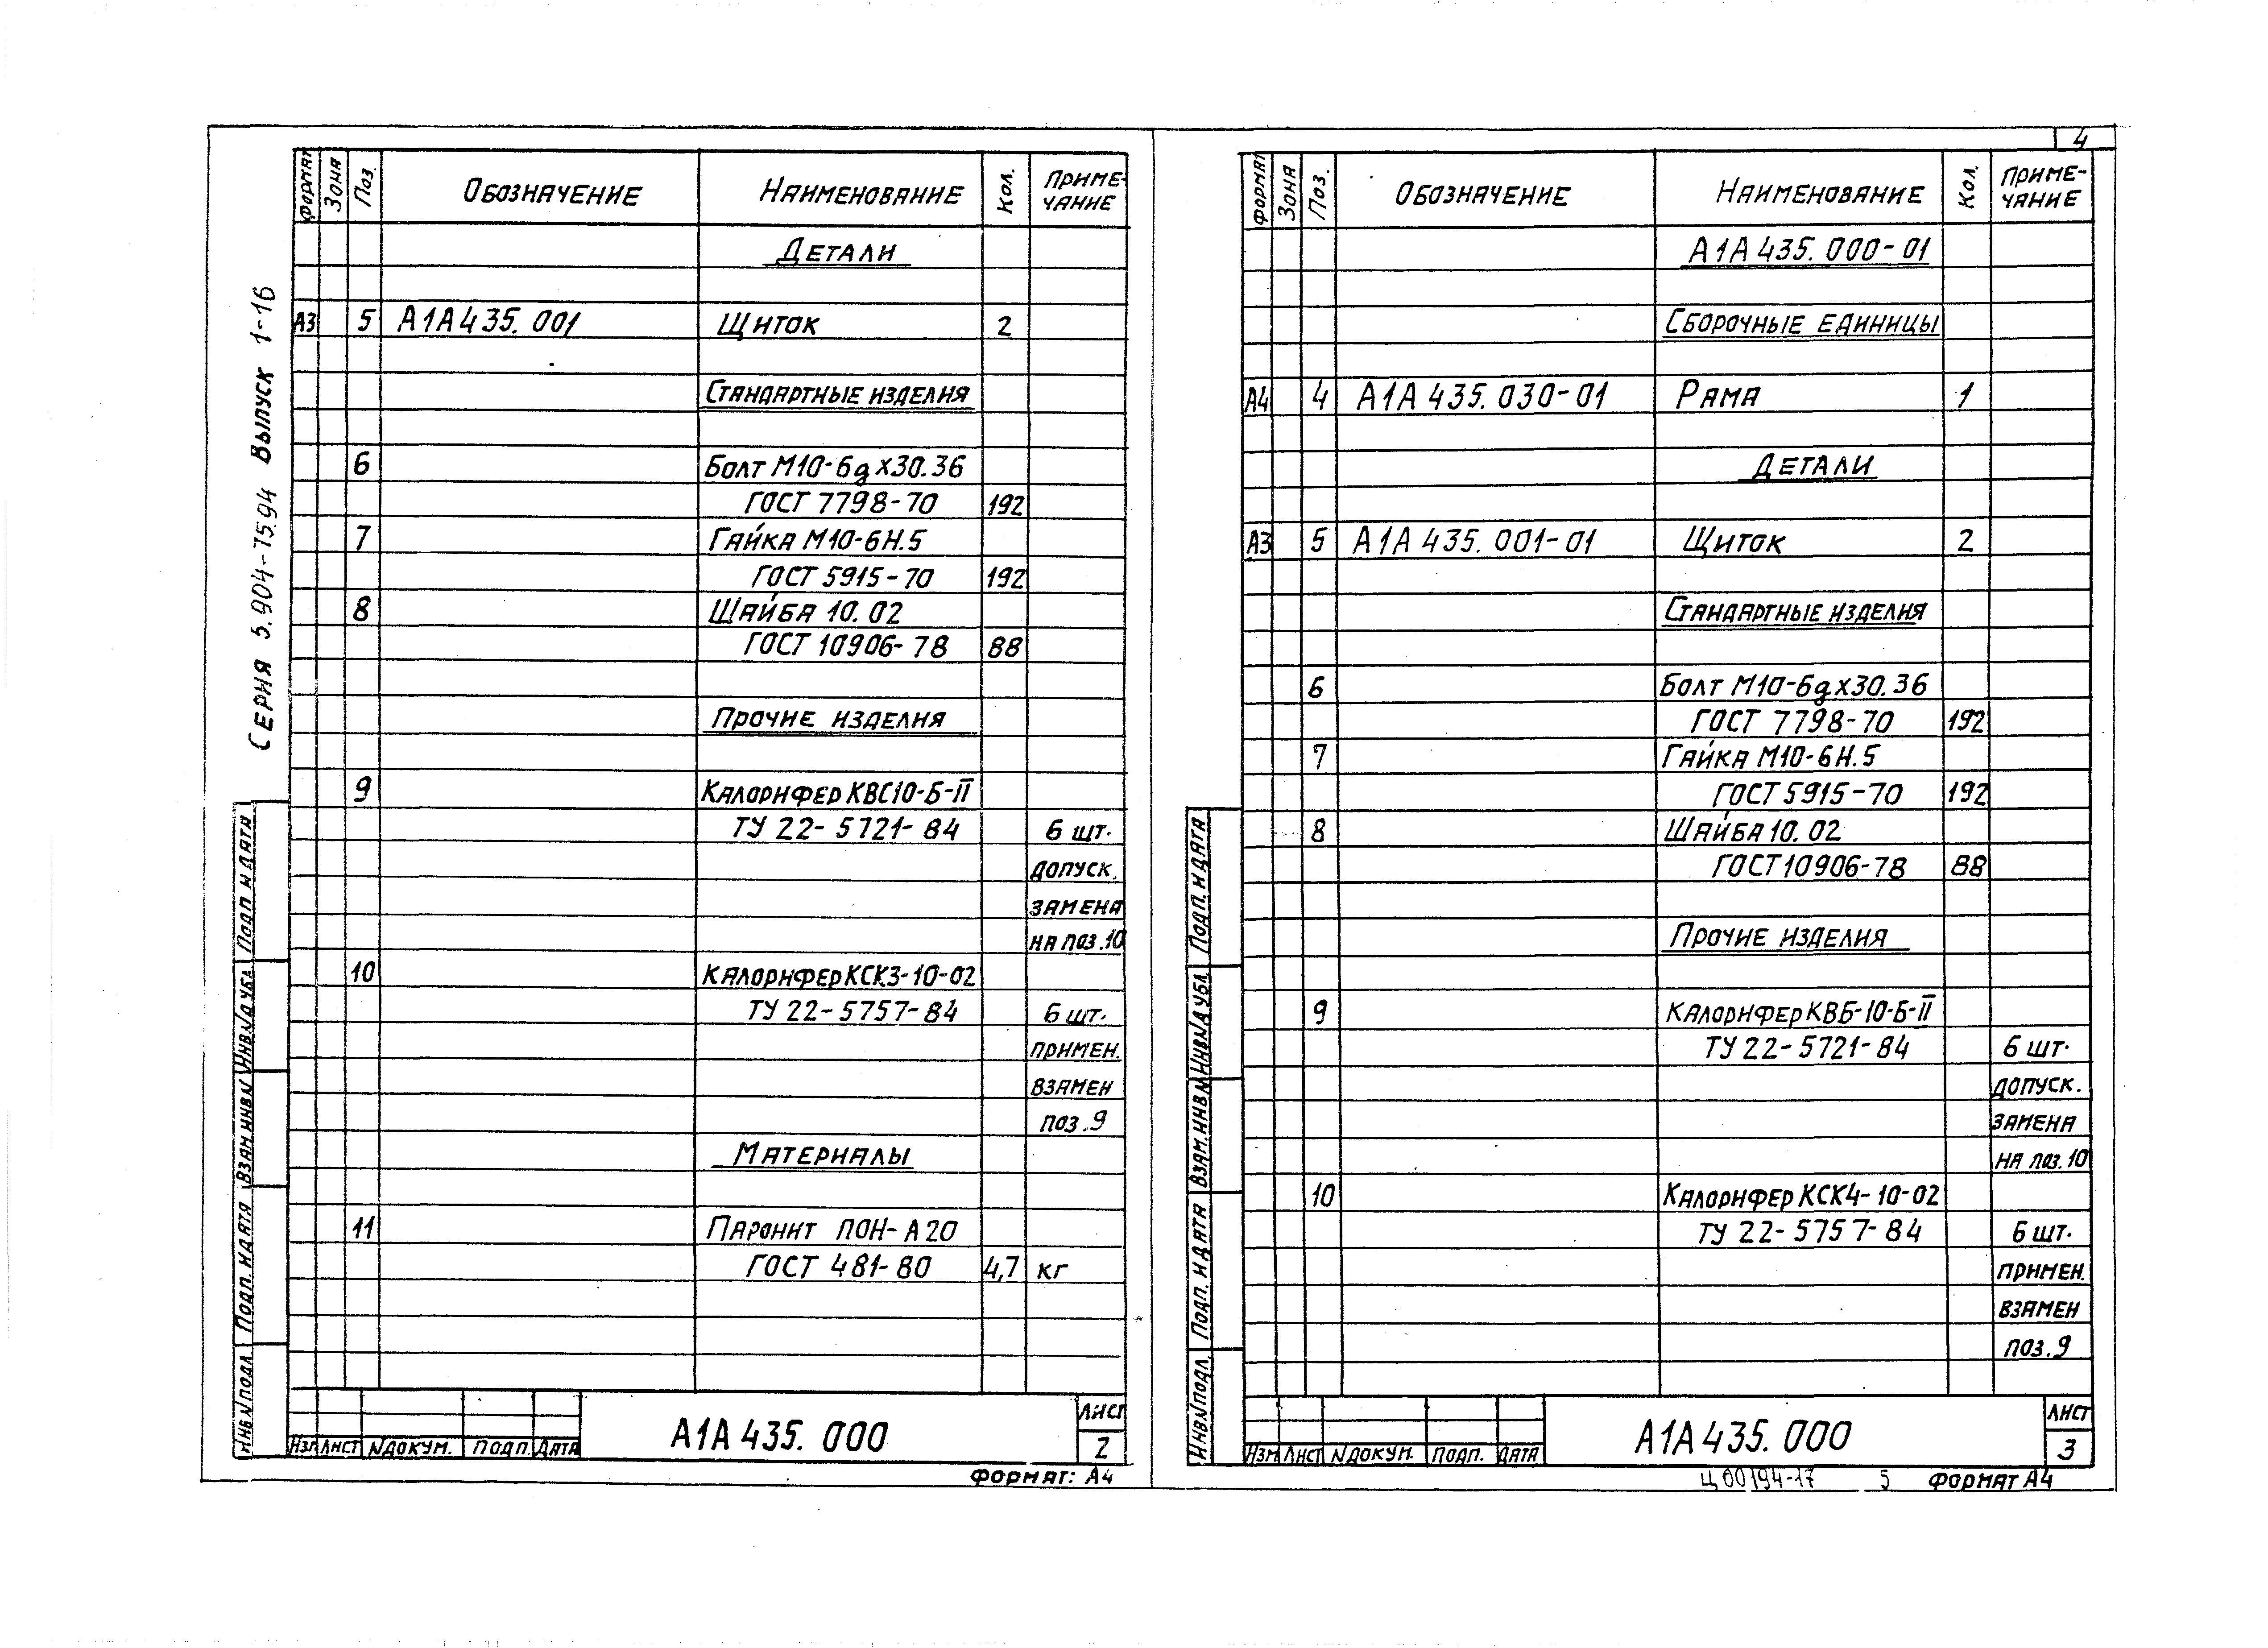 4
Серия 5.904-75.94 Выпуск 1-16
Формат Зона Поз. Обозначение Наименование Кол. Примечание
Детали
А3 5 А1А435.001 Щиток 2
Стандартные изделия
6 Болт М10-6gх30.36
ГОСТ 7798-70 192
7 Гайка М10-6Н.5
ГОСТ 5915-70 192
8 Шайба 10.02
ГОСТ 10906-78 88
Прочие изделия
9 Калорифер КВС10-Б-II
ТУ 22-5721-84 6 шт.
допуск.
замена
на поз.10
10 Калорифер КСК3-10-02
ТУ 22-5757-84 6 шт.
примен.
взамен
поз.9
Материалы
11 Паронит ПОН-А20
ГОСТ 481-80 4,7 кг
Инв.N подл. Подп. и дата Взам.инв.N Инв.N дубл. Подп. и дата
Изм Лист N докум. Подп. Дата
А1А435.000
Лист
2
Формат: А4
Формат Зона Поз. Обозначение Наименование Кол. Примечание
А1А435.000-01
Сборочные единицы
А4 4 А1А435.030-01 Рама 1
Детали
А3 5 А1А435.001-01 Щиток 2
Стандартные изделия
6 Болт М10-6gх30.36
ГОСТ 7798-70 192
7 Гайка М10-6Н.5
ГОСТ 5915-70 192
8 Шайба 10.02
ГОСТ 10906-78 88
Прочие изделия
9 Калорифер КВБ-10-Б-II
ТУ 22-5721-84 6 шт.
допуск.
замена
на поз.10
10 Калорифер КСК4-10-02
ТУ 22-5757-84 6 шт.
примен.
взамен
поз.9
Инв.N подл. Подп. и дата Взам.инв.N Инв.N дубл. Подп. и дата
Изм Лист N докум. Подп. Дата
А1А435.000
Лист
3
Ц00194-17 5 Формат А4